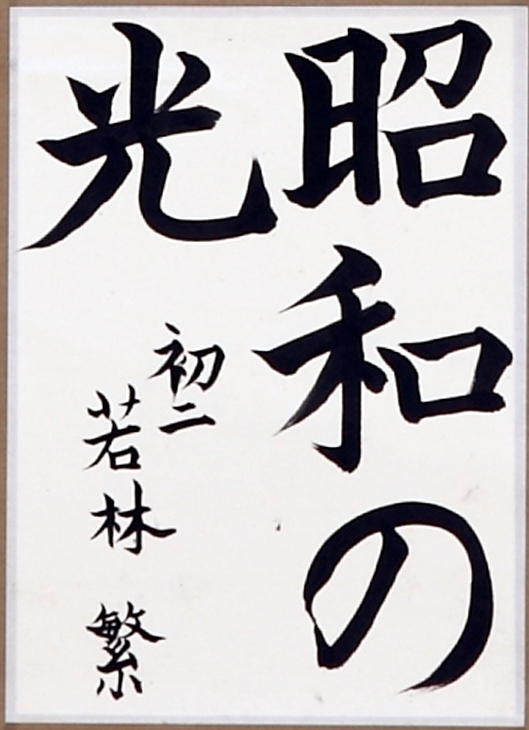 昭和の
光
初二
若林 繁